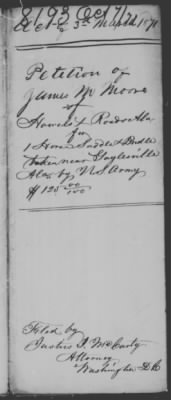 Act of 3rd March 1871
Petition of
James M Moore
of
Howells X Roads Ala
for
1 Horse Saddle & Bridle
taken near Gaylesville
Ala by US Army
$125 00/100
Filed by
Justus I. McCarty
Attorney
Washington D.C.